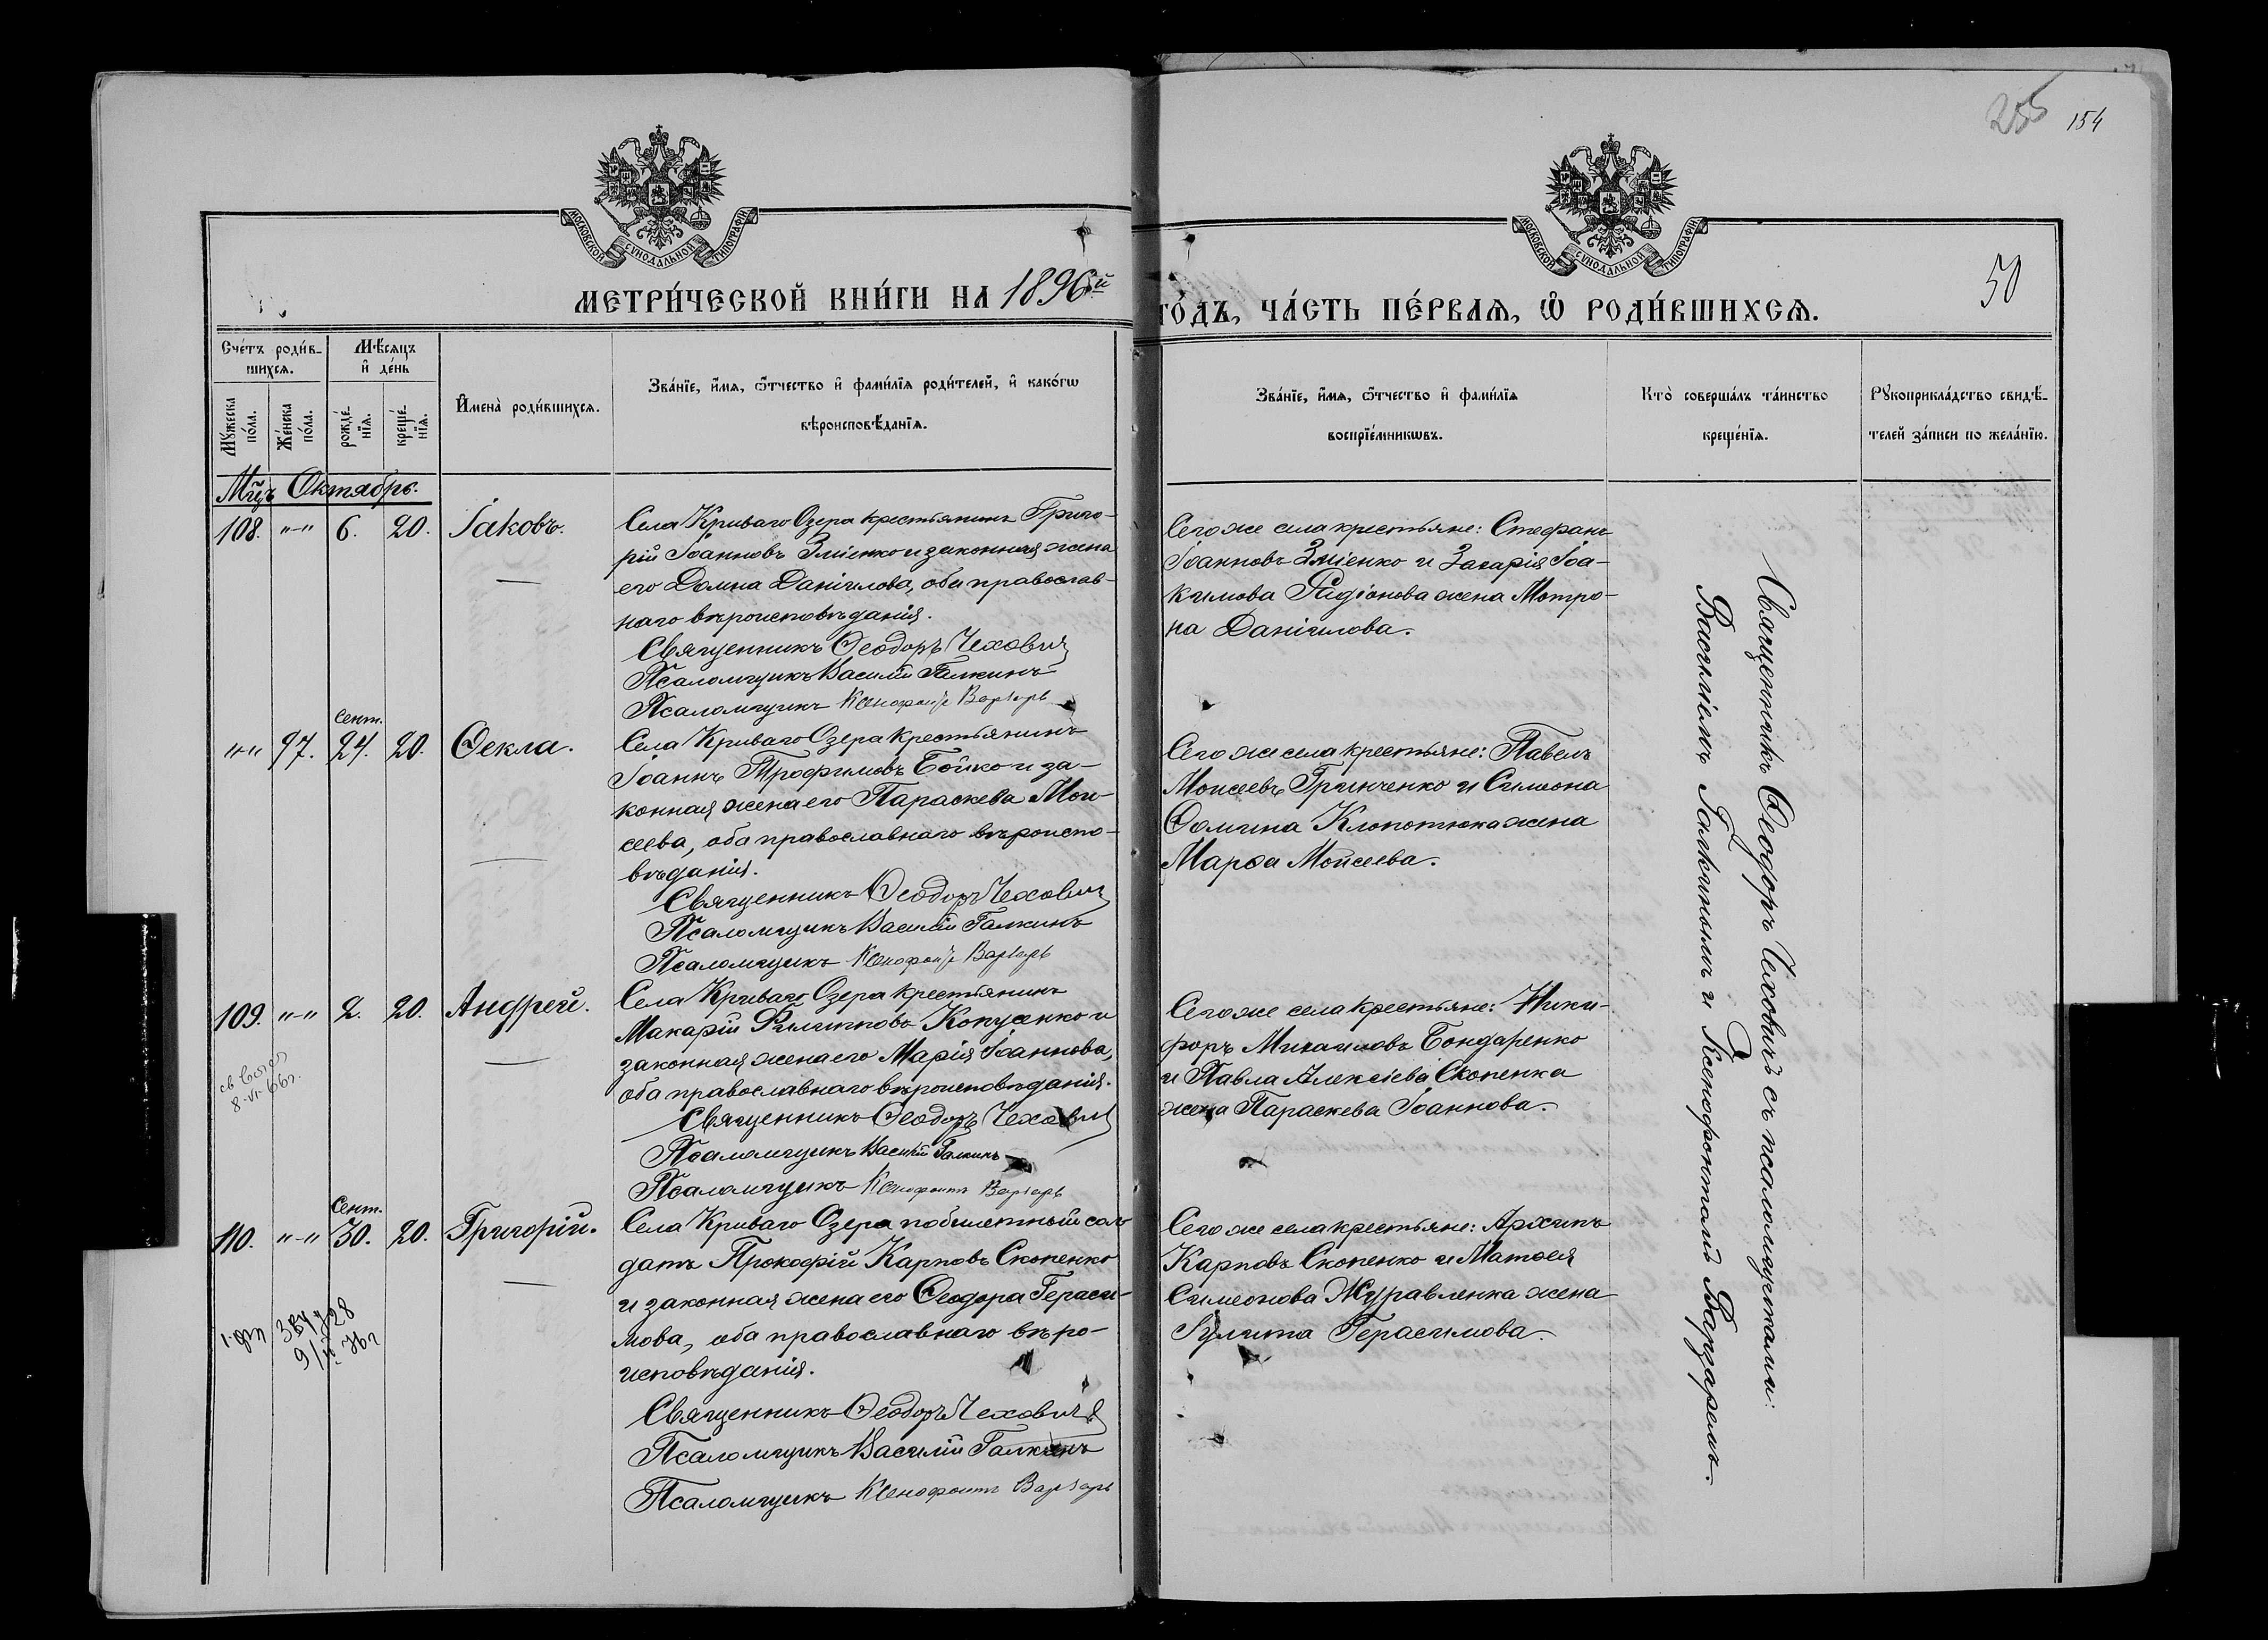 255 154
МОСКОВСКОЙ СѴНОДАЛЬНОЙ ТИПОГРАФІИ
МОСКОВСКОЙ СѴНОДАЛЬНОЙ ТИПОГРАФІИ
МЕТРИ́ЧЕСКОЙ КНИ́ГИ НА 1896й
ГО́ДЪ, ЧА́СТЬ ПЕ́РВАѦ, Ѡ҆ РОДИ́ВШИХСѦ.
50
Счéтъ роди́в-
шихсѧ.
Мꙋ́жеска
по́ла.
Же́нска
по́ла.
Мѣ́сѧцъ
и҆ де́нь
рожде́-
нїѧ.
креще́-
нїѧ.
И҆мена̀ роди́вшихсѧ.
Зва́нїе, и҆́мѧ, ѻ҆́тчество и҆ фами́лїѧ роди́телей, и҆ како́гѡ
вѣроисповѣ́данїѧ.
Зва́нїе, и҆́мѧ, ѻ҆́тчество и҆ фами́лїѧ
воспрїе́мникѡвъ.
Кто̀ соверша́лъ та́инство
креще́нїѧ.
Рꙋкоприкла́дство свидѣ́-
телей за́писи по жела́нїю.
Мцъ Октябрь.
108. „-„ 6. 20. Іаковъ.
Села Криваго Озера крестьянинъ Григо-
рій Іоанновъ Зміенко и законная жена
его Домна Даніилова, оба православ-
наго вѣроисповѣданія.
Священникъ Ѳеодоръ Чеховичъ
Псаломщикъ Василій Галкинъ
Псаломщикъ Ксенофонтъ Варзарь
Сегоже села крестьяне: Стефанъ
Іоанновъ Зміенко и Захарія Іоа-
кимова Радіонова жена Мотро-
на Даніилова.
„-„ 97. Сент. 24. 20. Ѳекла.
Села Криваго Озера крестьянинъ
Іоаннъ Трофимовъ Бойко и за-
конная жена его Параскева Мои-
сеева, оба православнаго вѣроиспо-
вѣданія.
Священникъ Ѳеодоръ Чеховичъ
Псаломщикъ Василій Галкинъ
Псаломщикъ Ксенофонтъ Варзарь
Сегоже села крестьяне: Павелъ
Моисеевъ Гринченко и Симеона
Ѳомина Клопотюка жена
Марѳа Моисеева.
109. „-„ 2. 20. Андрей.
8-VI-66г.
Села Криваго Озера крестьянинъ
Макарій Филипповъ Копусенко и
законная жена его Марія Іоаннова,
оба православнаго вѣроисповѣданія.
Священникъ Ѳеодоръ Чеховичъ
Псаломщикъ Василій Галкинъ
Псаломщикъ Ксенофонтъ Варзарь
Сегоже села крестьяне: Ники-
форъ Михаиловъ Бондаренко
и Павла Алексіева Скопенка
жена Параскева Іоаннова.
110. „-„ Сент. 30. 20. Григорій.
Села Криваго Озера побилетный сол-
датъ Прокофій Карповъ Скопенко
и законная жена его Ѳеодора Гераси-
мова, оба православнаго вѣро-
исповѣданія.
Священникъ Ѳеодоръ Чеховичъ
Псаломщикъ Василій Галкинъ
Псаломщикъ Ксенофонтъ Варзарь
Сегоже села крестьяне: Архипъ
Карповъ Скопенко и Матѳея
Симеонова Журавленка жена
Іулита Герасимова.
Священникъ Ѳеодоръ Чеховичъ съ псаломщиками:
Василіемъ Галкинымъ и Ксенофонтомъ Варзаремъ.